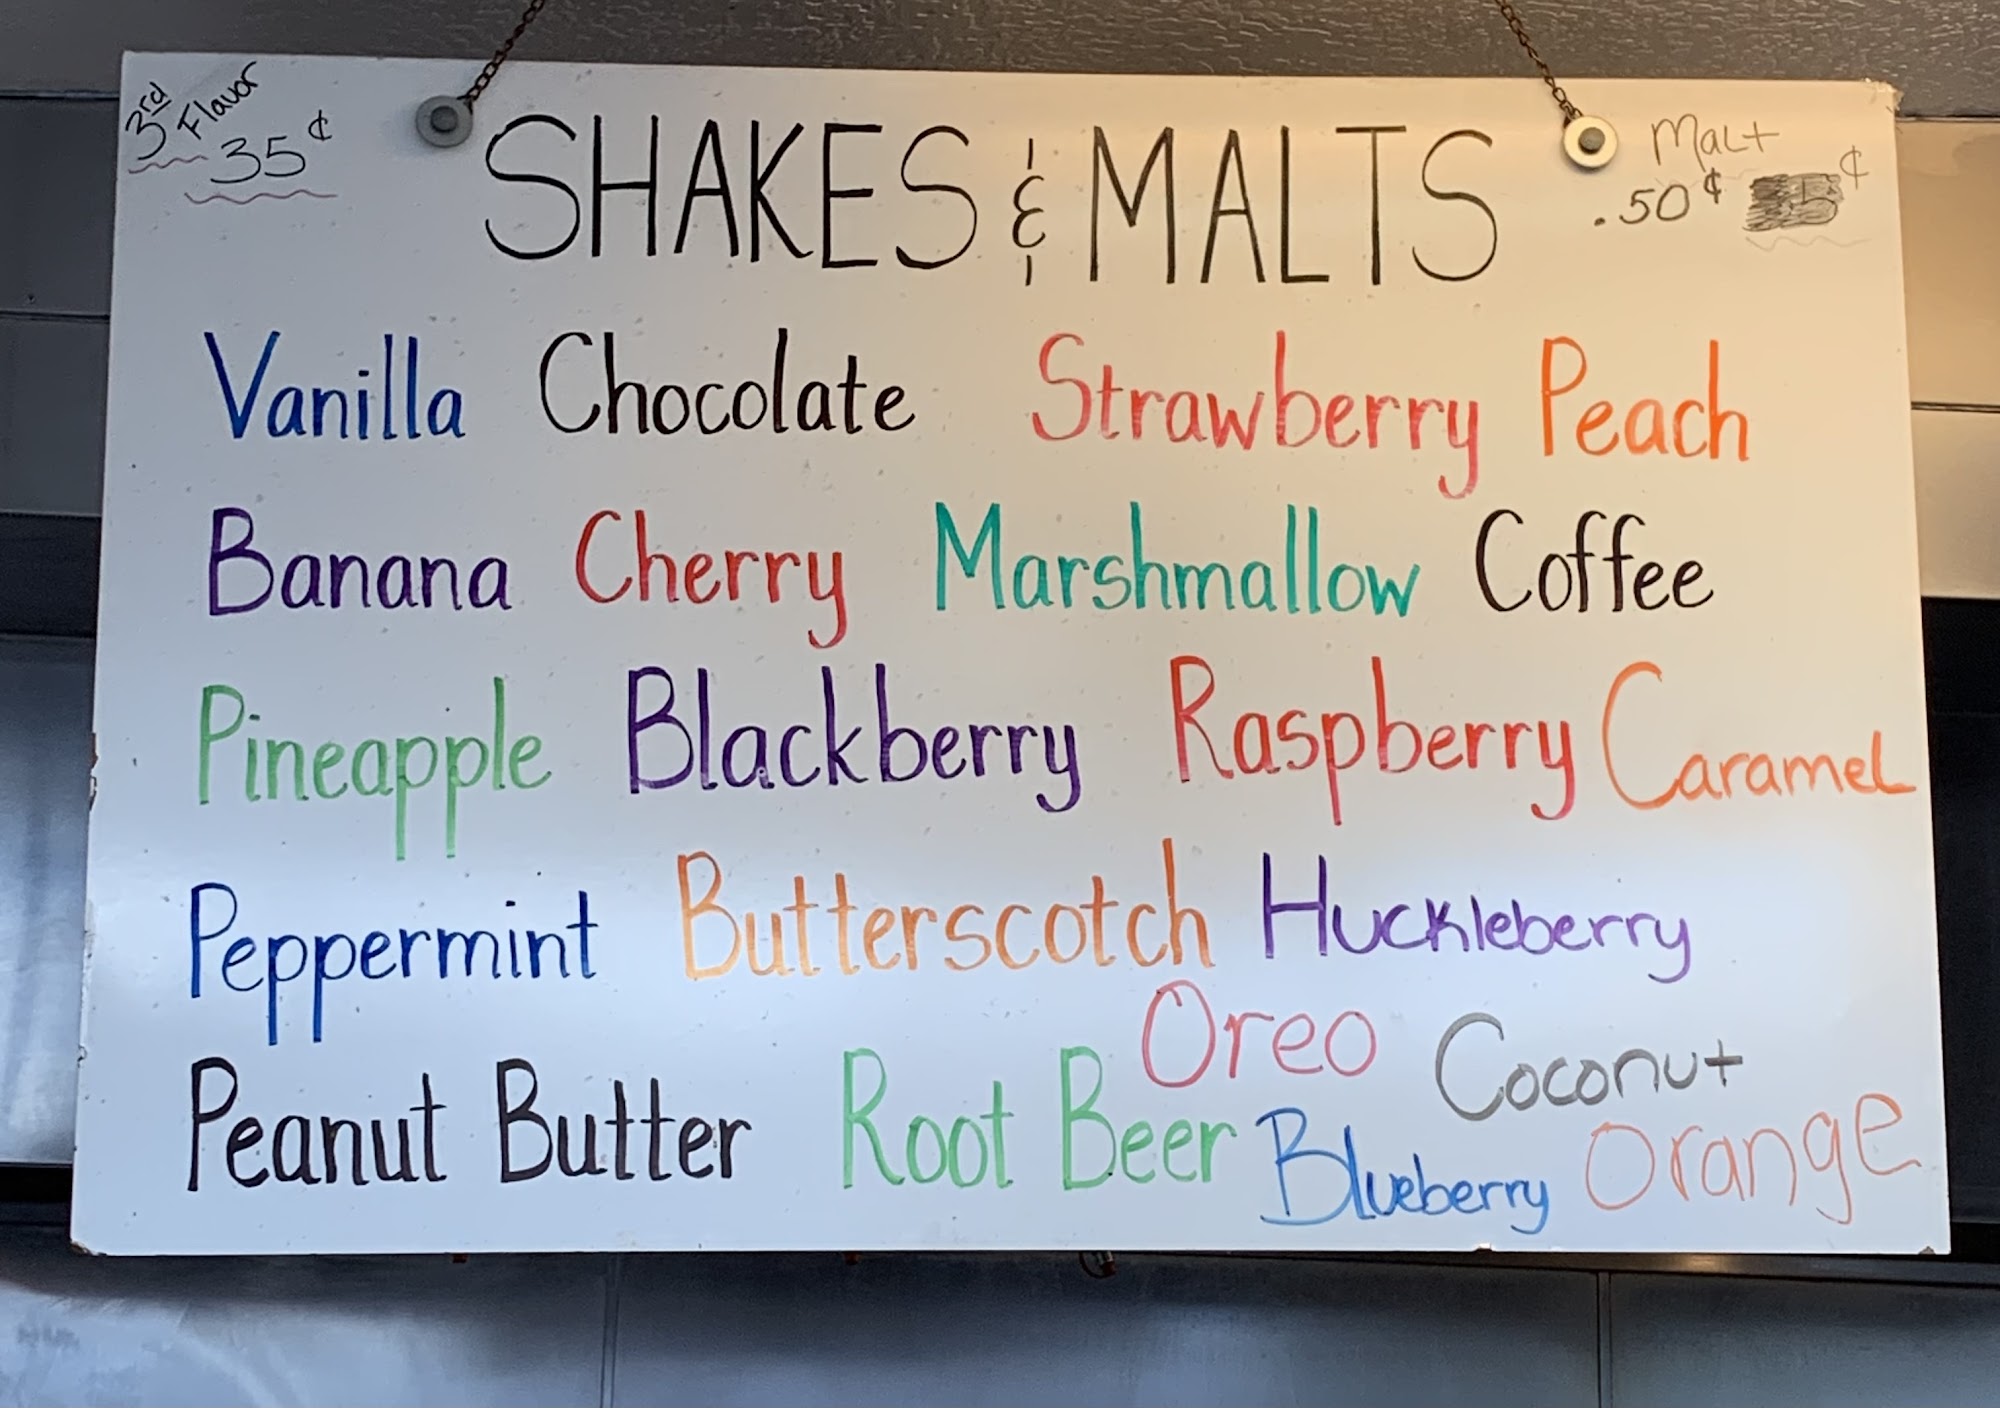 3rd Flavor
35¢
SHAKES & MALTS
Malt
.50¢ ¢
Vanilla Chocolate Strawberry Peach
Banana Cherry Marshmallow Coffee
Pineapple Blackberry Raspberry Caramel
Peppermint Butterscotch Huckleberry
Oreo Coconut
Peanut Butter Root Beer Blueberry Orange